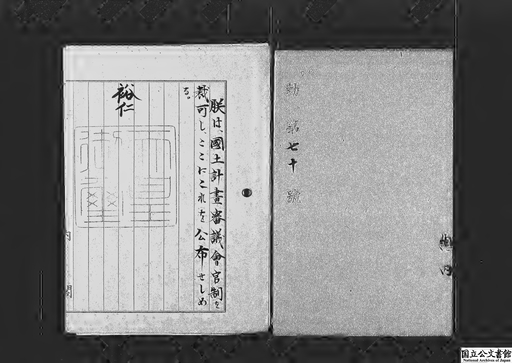 勅令第七十號
朕は、國土計畫審議會官制を
裁可し、ここにこれを公布せしめ
る。
裕仁
天皇
御璽
内閣
国立公文書館
National Archives of Japan